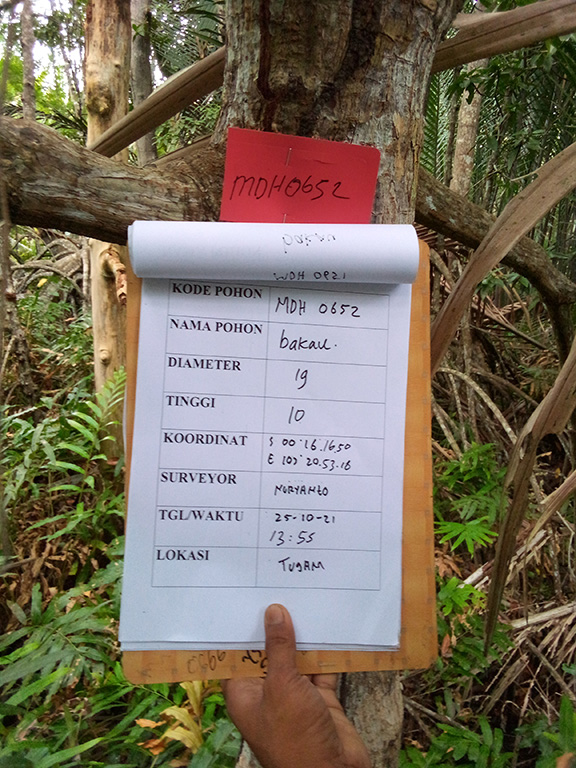 MDH0652
KODE POHON MDH 0652
NAMA POHON bakau.
DIAMETER 19
TINGGI 10
KOORDINAT S 00°16.16.50
E 103°20.53.16
SURVEYOR NURYANTO
TGL/WAKTU 25-10-21
13:55
LOKASI TUGAM